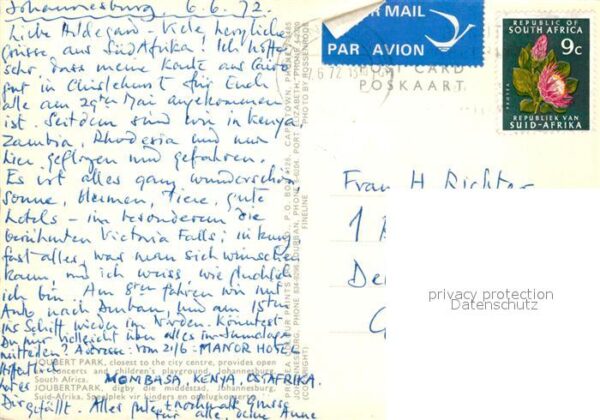 Johannesburg, 6.6.72.
Liebe Hildegard – Viele herzliche
Grüsse aus Südafrika! Ich hoffe
sehr, dass meine Karte aus Cairo
gut in Chislehurst für Euch
alle am 29ten Mai angekommen
ist. Seitdem sind wir in Kenya
Zambia, Rhodesia und nun
hier geflogen und gefahren.
Es ist alles ganz wunderschön
Sonne, Blumen, Tiere, gute
Hotels – im besonderen die
berühmten Victoria Falls; in kurz
fast alles, was man sich wünschen
kann, und ich weiss wie glücklich
ich bin. Am 8ten fahren wir mit
Auto nach Durban, und am 15ten
ins Schiff wieder im Norden. Könntest
Du mir vielleicht über alles
mitteilen? Adresse: vom 21/6: MANOR HOTEL
MOMBASA, KENYA, OSTAFRIKA.
Hoffentlich
Dir gefällt. Alles gute
für alle, deine Anne
JOUBERT PARK, closest to the city centre, provides open
air concerts and children's playground, Johannesburg,
South Africa.
JOUBERTPARK, digby die middestad, Johannesburg,
Suid-Afrika. Speelplek vir kinders en opelugkonserte.
AIR MAIL
PAR AVION
POST CARD
POSKAART.
6 72
REPUBLIC OF
SOUTH AFRICA
9c
PROTEA
REPUBLIEK VAN
SUID-AFRIKA
PHOTO BY
FINELINE
(COPYRIGHT)
Frau H. Richter
1
De
G
privacy protection
Datenschutz